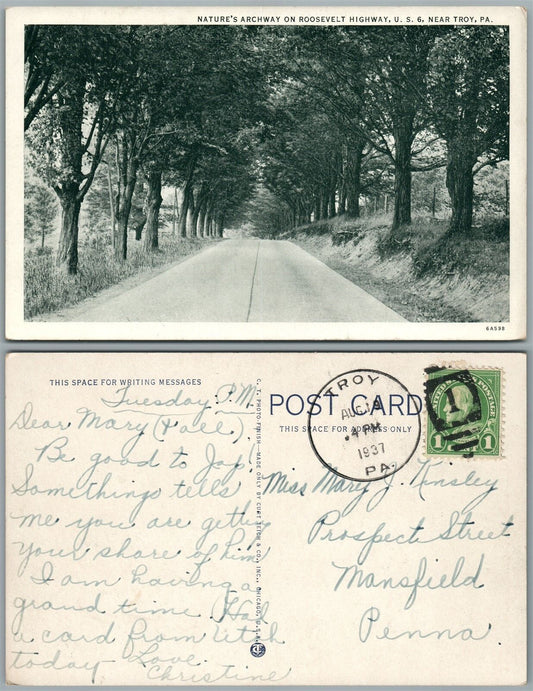 NATURE'S ARCHWAY ON ROOSEVELT HIGHWAY, U. S. 6, NEAR TROY, PA.
6A598
THIS SPACE FOR WRITING MESSAGES
Tuesday P.M.
Dear Mary (& all)
Be good to Jay!
Somethings tells
me you are getting
your share of him
I am having a
grand time. Had
a card from
today Love
Christine
C. T. PHOTO-FINISH—MADE ONLY BY CURT TEICH & CO., INC., CHICAGO, U.S.A.
POST CARD
THIS SPACE FOR ADDRESS ONLY
TROY
AUG
4 PM
1937
PA.
POSTAGE
1
1
1
Miss Mary J. Kinsley
Prospect Street
Mansfield
Penna